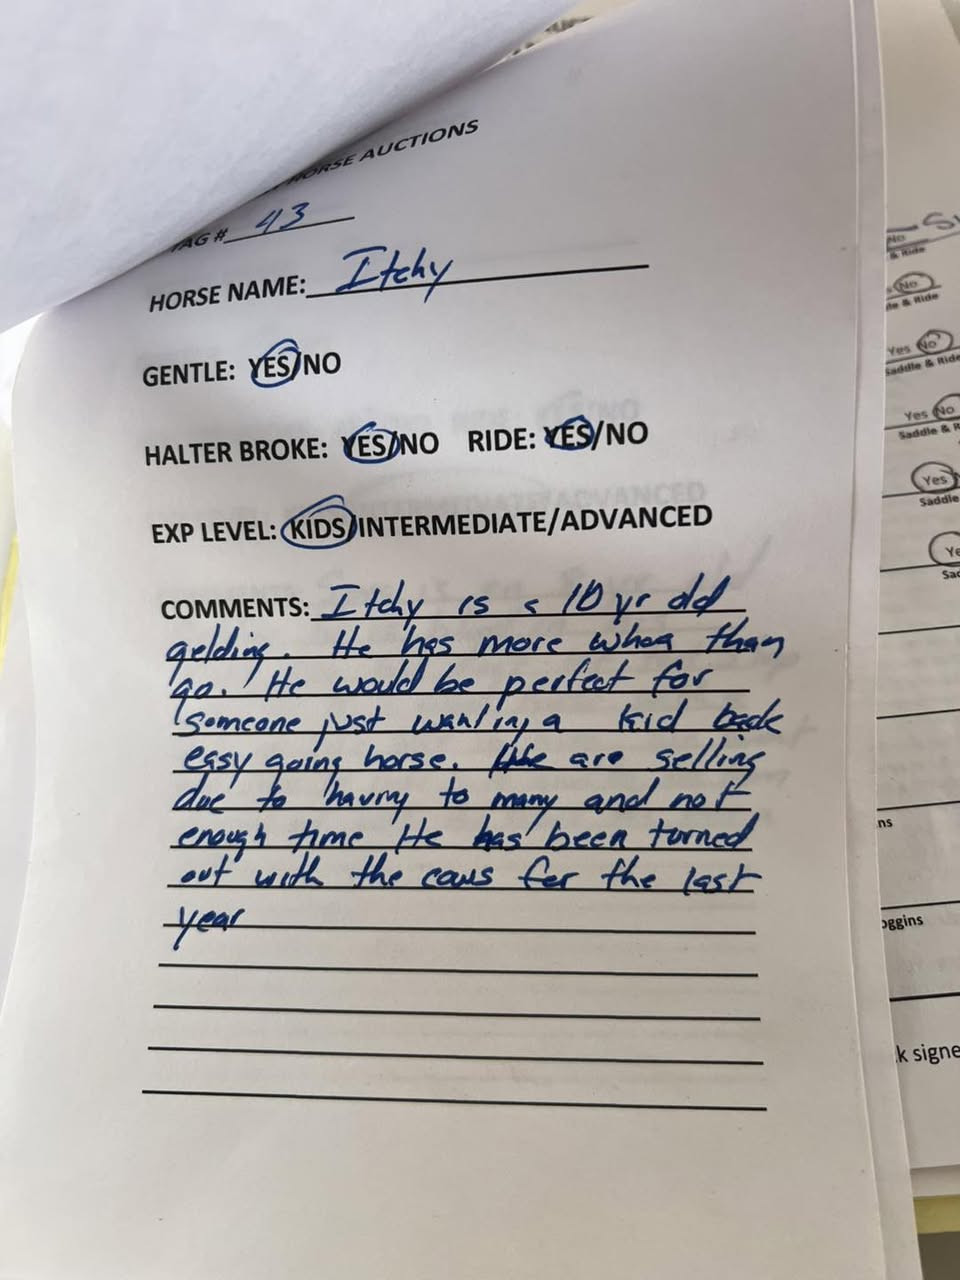 HORSE AUCTIONS
TAG # 43
HORSE NAME: Itchy
GENTLE: YES/NO
HALTER BROKE: YES/NO RIDE: YES/NO
EXP LEVEL: KIDS/INTERMEDIATE/ADVANCED
COMMENTS: Itchy is a 10 yr old
gelding. He has more whoa than
go. He would be perfect for
someone just wanting a kid back
easy going horse. We are selling
due to having to many and not
enough time He has been turned
out with the cows for the last
year
No
& Ride
No
& Ride
Yes No
Saddle & Ride
Yes No
Saddle & R
Yes
Saddle
Ye
Sad
ns
oggins
k signe